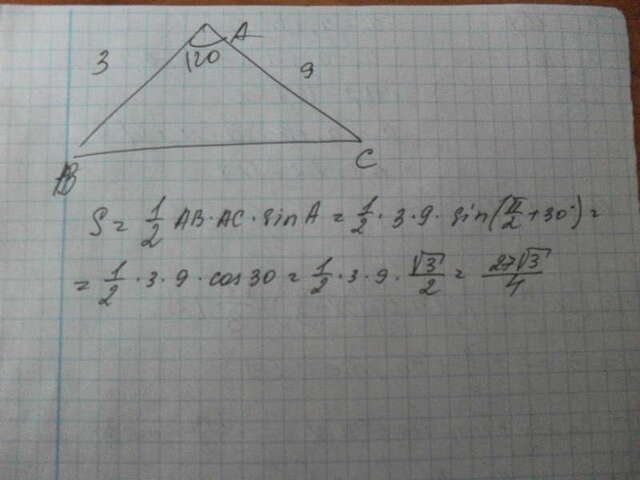 A
120
3
9
B
C
S = 1/2 AB · AC · sin A = 1/2 · 3 · 9 · sin(π/2 + 30°) =
= 1/2 · 3 · 9 · cos 30 = 1/2 · 3 · 9 · √3/2 = 27√3/4